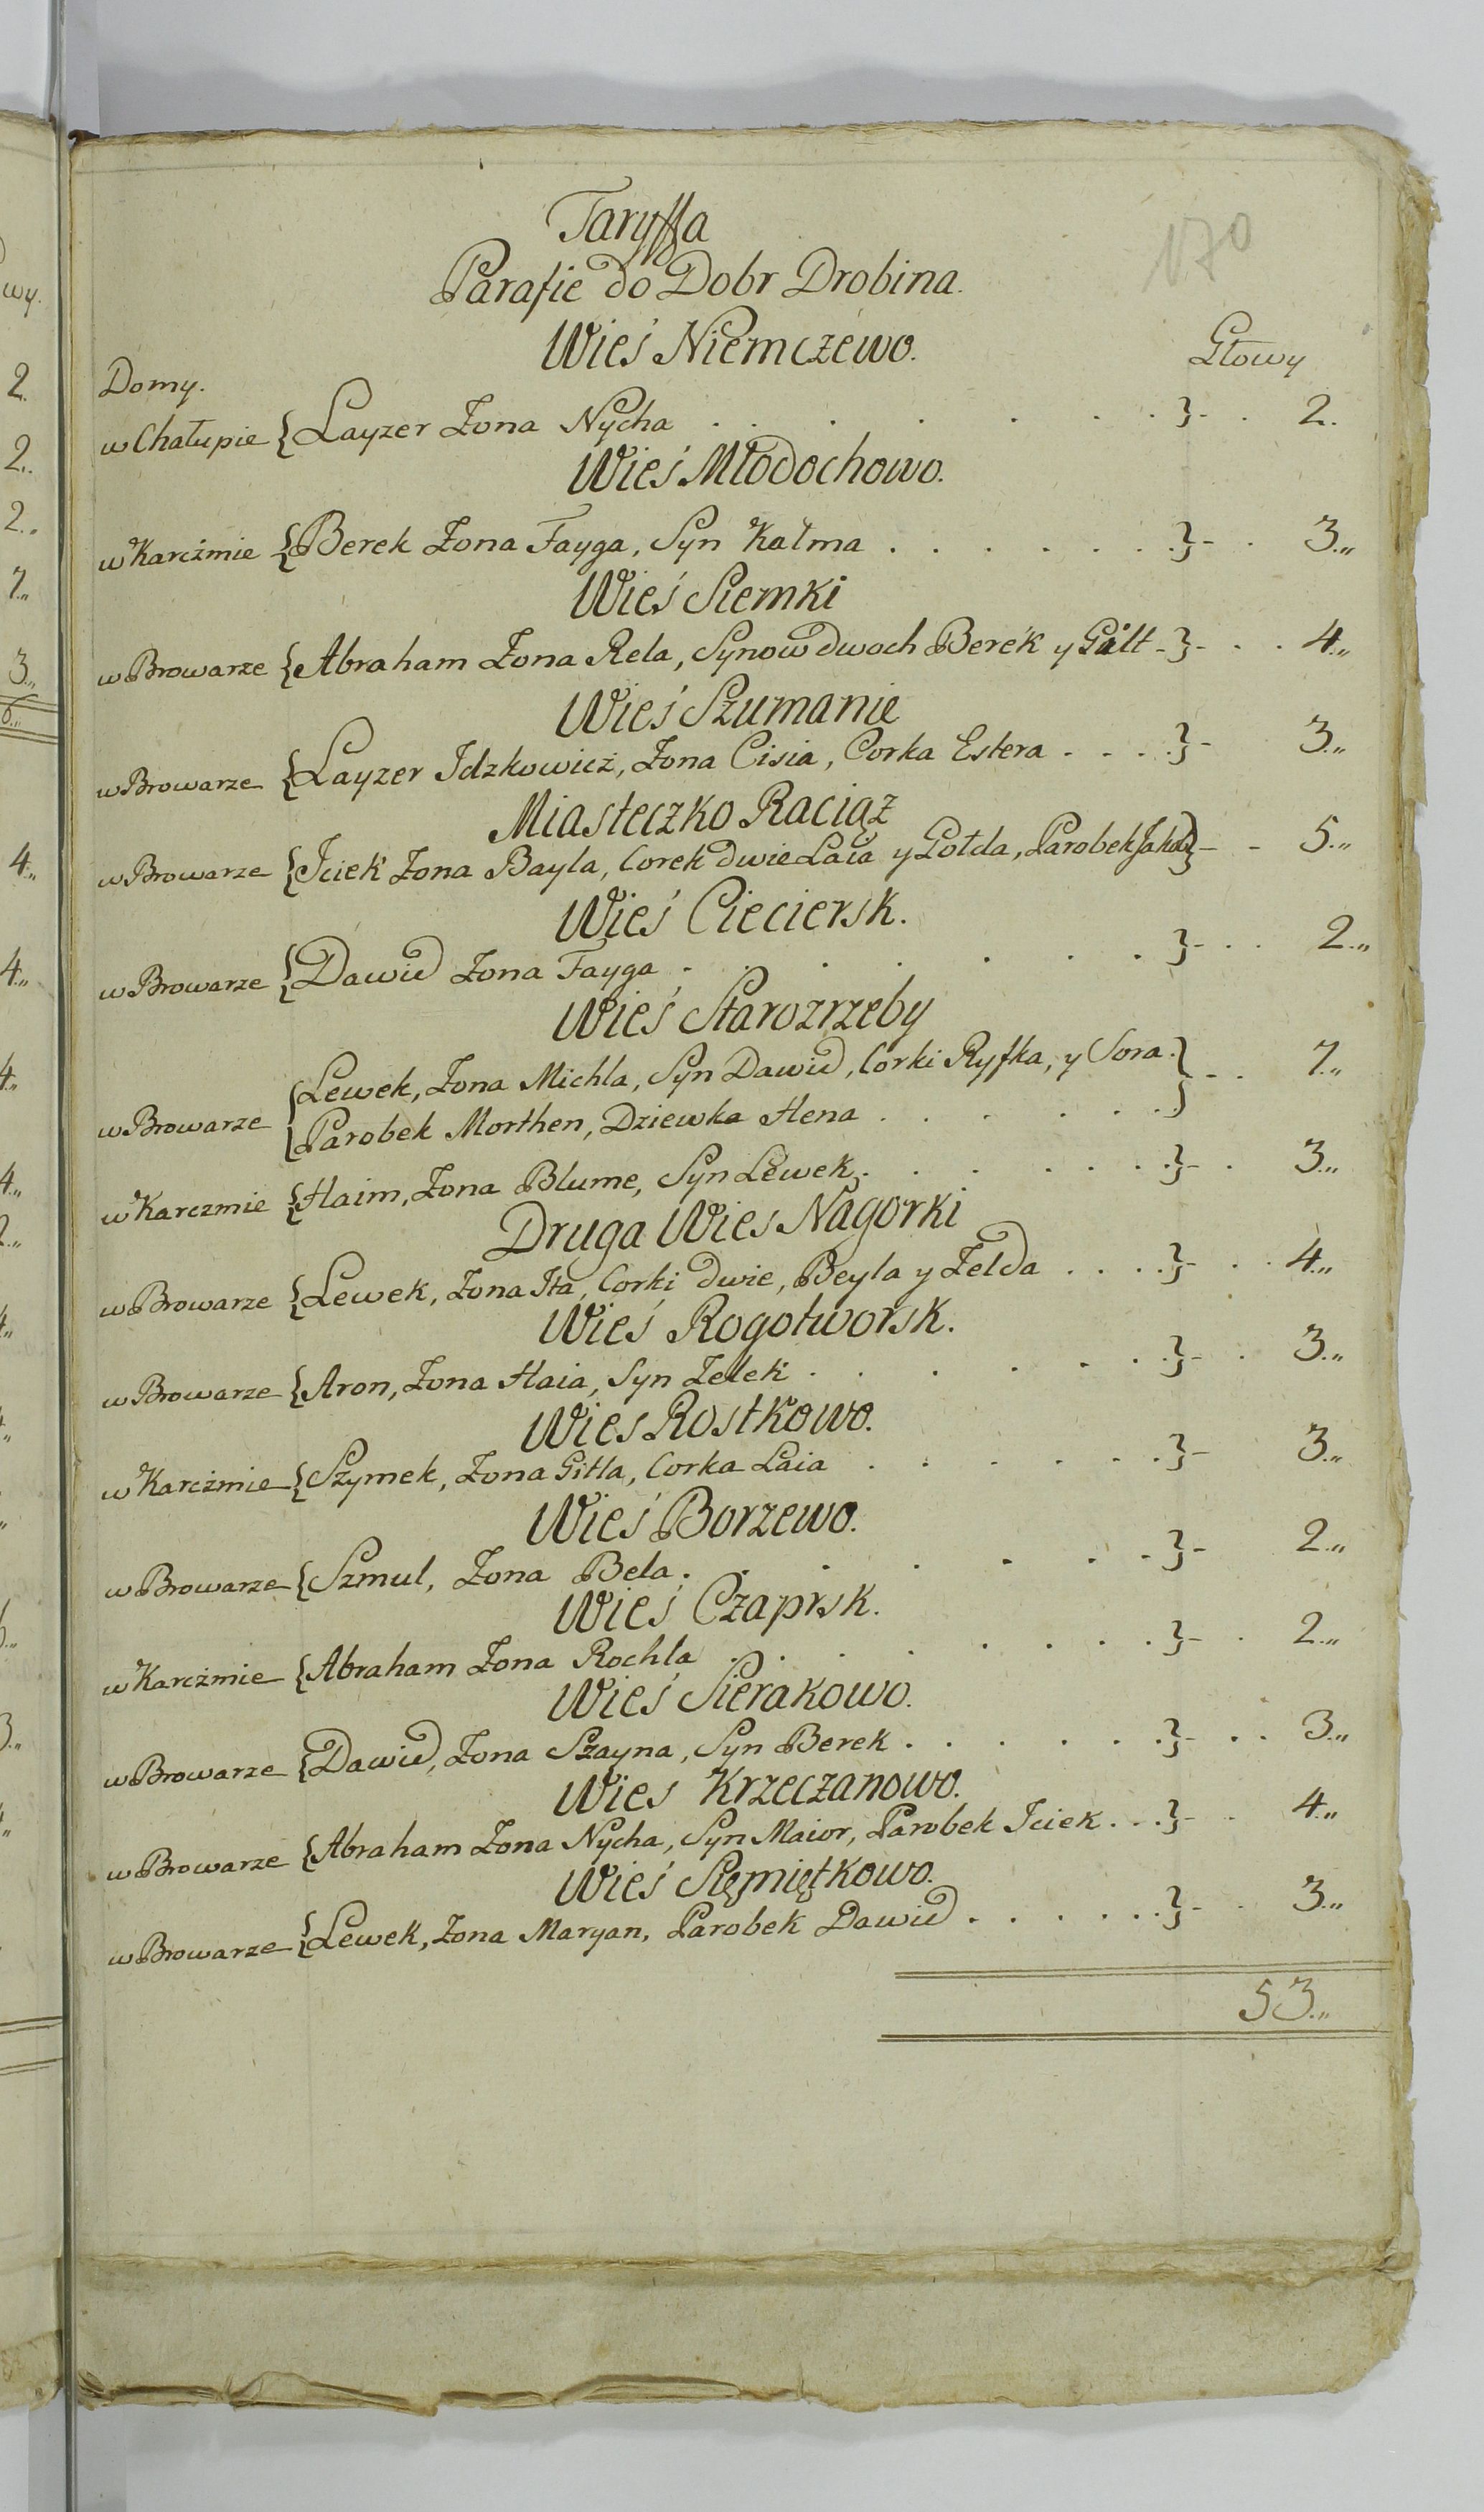 170
Taryffa
Parafie do Dobr Drobina.
Wieś Niemczewo.
Głowy
Domy.
w Chałupie { Layzer Żona Nycha . . . . . . . } - . . 2.
Wieś Młodochowo.
w Karczmie { Berek Żona Fayga, Syn Kalma . . . . . . . } - . 3.,,
Wieś Siemki
w Browarze { Abraham Żona Rela, Synow dwoch Berek y - } - . . 4.,,
Wieś Szumanie
w Browarze { Layzer Idzkowicz, Żona Cisia, Corka Estera . . . . } - 3.,,
Miasteczko Raciąz
w Browarze { Jciek Żona Bayla, Corek dwie Laia y Gołda, Parobek } - - 5.,,
Wieś Cieciersk.
w Browarze { Dawid Żona Fayga . . . . . . . } - . . 2.,,
Wieś Starozrzeby
w Browarze { Lewek, Żona Michla, Syn Dawid, Corki Ryfka, y Sora . } - . . 7.,,
Parobek Morthen, Dziewka Hena . . . . . . .
w Karczmie { Haim, Żona Blume, Syn Lewek . . . . . . . } - . 3.,,
Druga Wies Nagorki
w Browarze { Lewek, Żona Ita, Corki dwie, Beyla y Zelda . . . . } - . . 4.,,
Wieś Rogotworsk.
w Browarze { Aron, Żona Haia, Syn Zelek . . . . . . } - . 3.,,
Wies Rostkowo.
w Karczmie { Szymek, Żona Gitla, Corka Laia . . . . . . } - 3.,,
Wieś Borzewo.
w Browarze { Szmul, Żona Bela . . . . . . . } - 2.,,
Wieś Czaprsk.
w Karczmie { Abraham Żona Rochla . . . . . . . } - . 2.,,
Wieś Sierakowo.
w Browarze { Dawid, Żona Szayna, Syn Berek . . . . . . . } - . . 3.,,
Wies Krzeczanowo.
w Browarze { Abraham Żona Nycha, Syn Maior, Parobek Jciek . . . } - . 4.,,
Wieś Sięmiętkowo.
w Browarze { Lewek, Żona Maryan, Parobek Dawid . . . . . . } - . 3.,,
53.,,